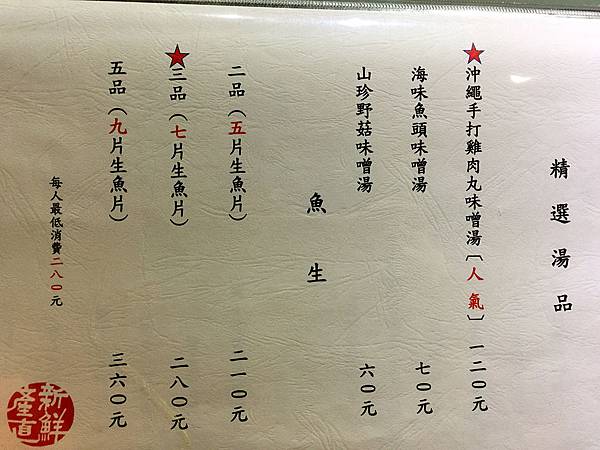 精選湯品
★沖繩手打雞肉丸味噌湯〔人氣〕一二○元
海味魚頭味噌湯 七○元
山珍野菇味噌湯 六○元
魚生
二品（五片生魚片） 二一○元
★三品（七片生魚片） 二八○元
五品（九片生魚片） 三六○元
每人最低消費二八○元
新鮮
產直